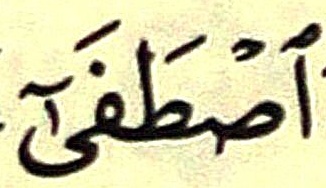 ٱصْطَفَىٰٓ